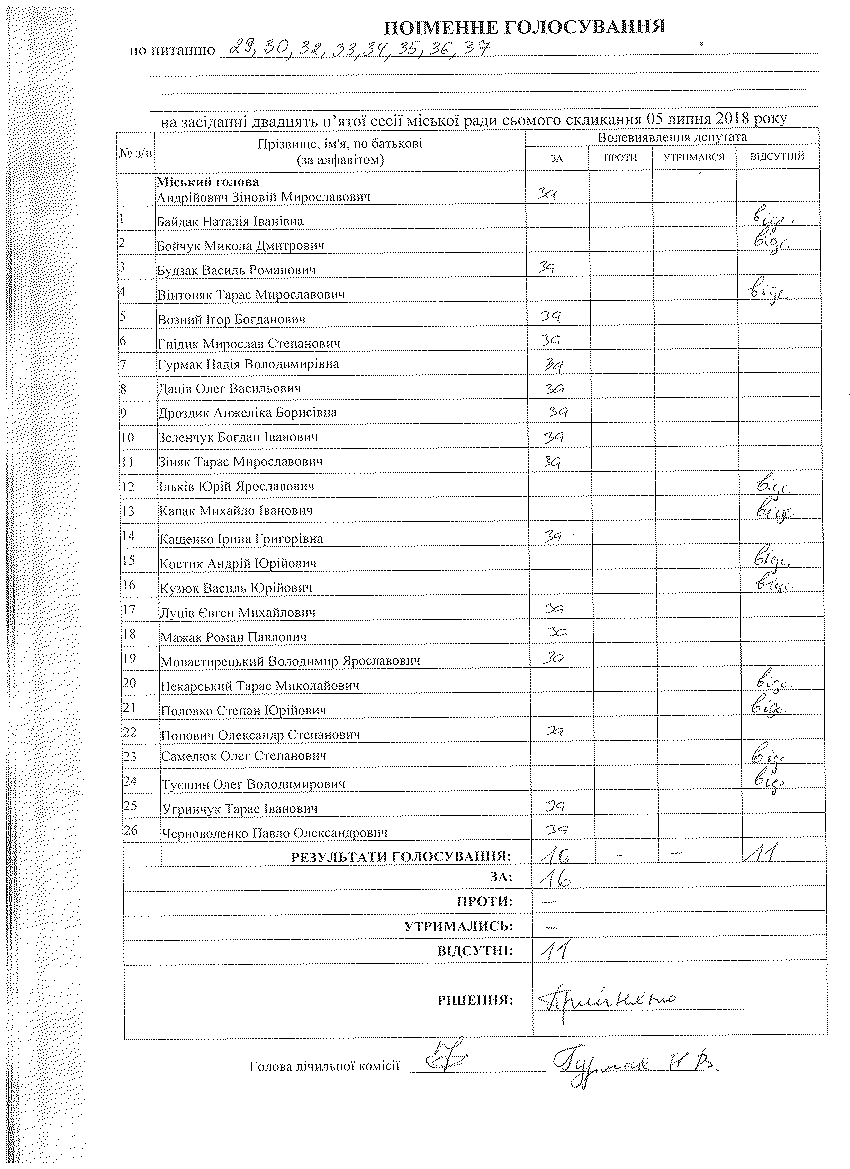 ПОІМЕННЕ ГОЛОСУВАННЯ
по питанню 29, 30, 32, 33, 34, 35, 36, 37
на засіданні двадцять п’ятої сесії міської ради сьомого скликання 05 липня 2018 року
№ з/п Прізвище, ім'я, по батькові (за алфавітом) Волевиявлення депутата
ЗА ПРОТИ УТРИМАВСЯ ВІДСУТНІЙ
Міський голова
Андрійович Зіновій Мирославович за
1 Байдак Наталія Іванівна відс.
2 Бойчук Микола Дмитрович відс.
3 Будзак Василь Романович за
4 Вінтоняк Тарас Мирославович відс.
5 Возний Ігор Богданович за
6 Гнідик Мирослав Степанович за
7 Гурмак Надія Володимирівна за
8 Даців Олег Васильович за
9 Дроздик Анжеліка Борисівна за
10 Зеленчук Богдан Іванович за
11 Зіняк Тарас Мирославович за
12 Ільків Юрій Ярославович відс.
13 Капак Михайло Іванович відс.
14 Кащенко Ірина Григорівна за
15 Костик Андрій Юрійович відс.
16 Кузюк Василь Юрійович відс.
17 Луців Євген Михайлович за
18 Мажак Роман Павлович за
19 Монастирецький Володимир Ярославович за
20 Пекарський Тарас Миколайович відс.
21 Половко Степан Юрійович відс.
22 Попович Олександр Степанович за
23 Самелюк Олег Степанович відс.
24 Туєшин Олег Володимирович відс.
25 Угринчук Тарас Іванович за
26 Черноволенко Павло Олександрович за
РЕЗУЛЬТАТИ ГОЛОСУВАННЯ: 16 - - 11
ЗА: 16
ПРОТИ: —
УТРИМАЛИСЬ: —
ВІДСУТНІ: 11
РІШЕННЯ: Прийнято
Голова лічильної комісії Гурмак Н В.